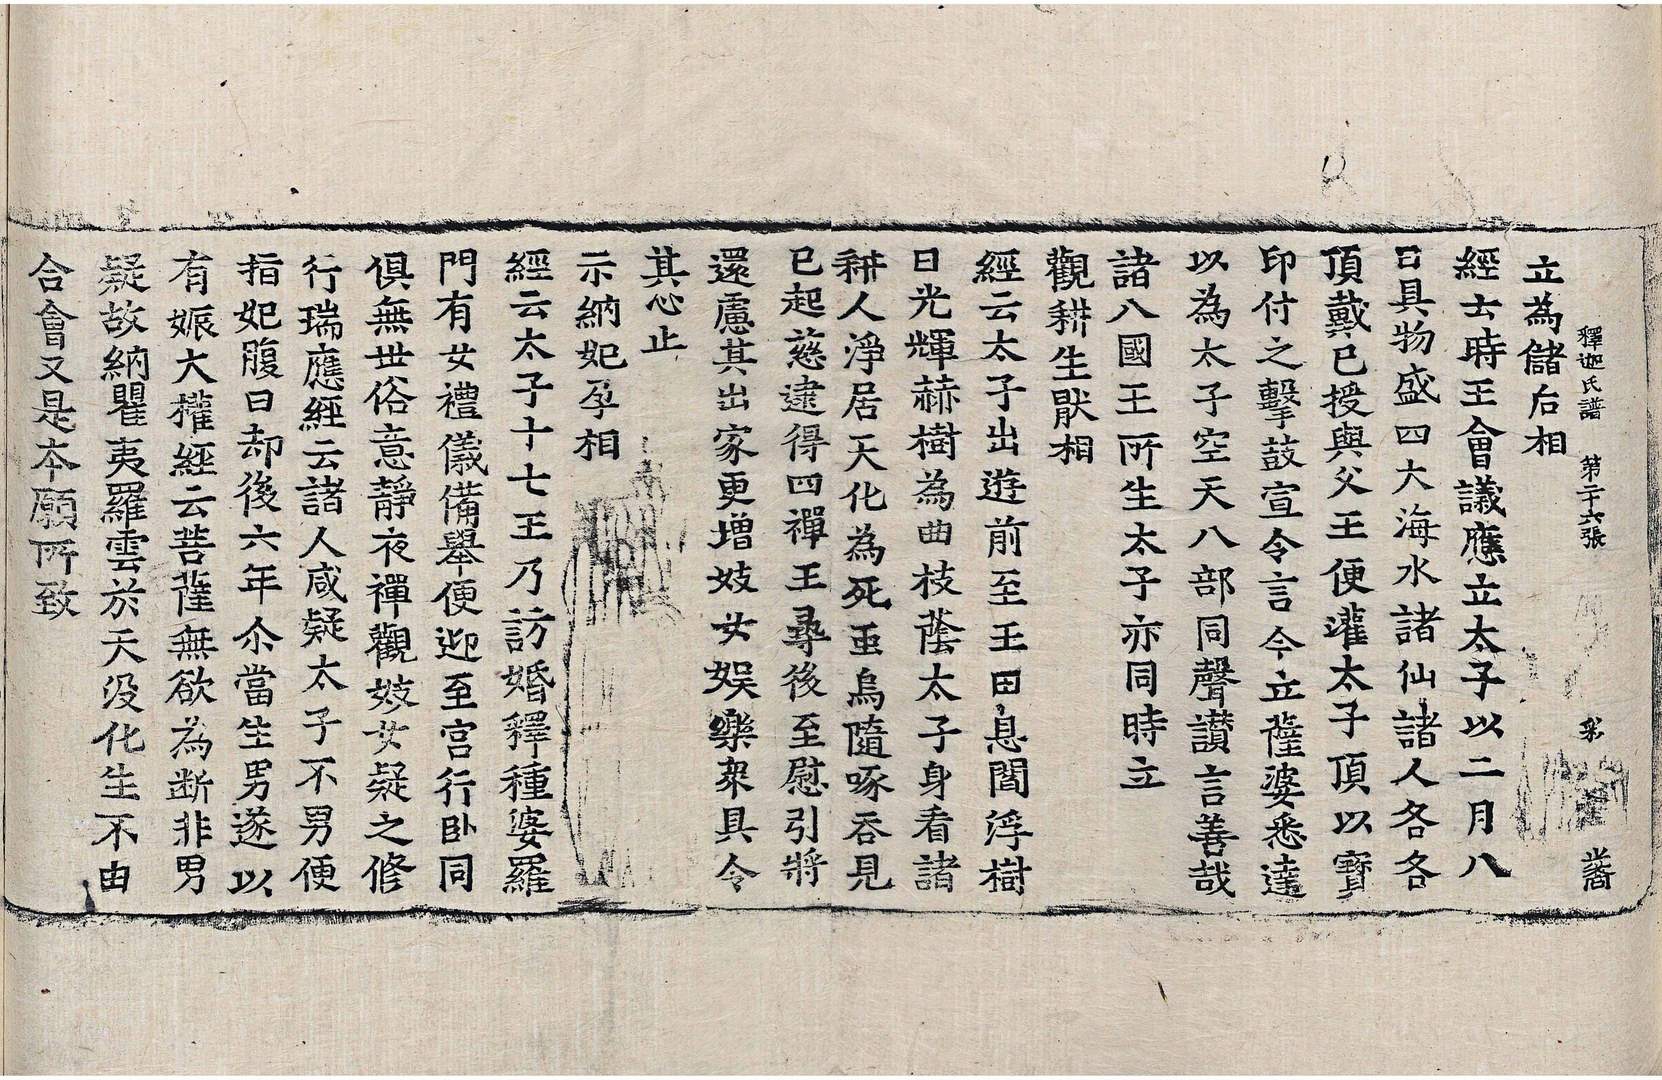 釋迦氏譜 第二十六張 彩
立為儲后相
經云時王會議應立太子以二月八
日具物盛四大海水諸仙諸人各各
頂戴已授與父王便灌太子頂以寶
印付之擊鼓宣令言今立薩婆悉達
以為太子空天八部同聲讃言善哉
諸八國王所生太子亦同時立
觀耕生猒相
經云太子出遊前至王田息閻浮樹
日光輝赫樹為曲枝蔭太子身看諸
耕人淨居天化為死虫烏隨啄吞見
已起慈逮得四禪王尋後至慰引將
還慮其出家更增妓女娛樂衆具令
其心止
示納妃孕相
經云太子十七王乃訪婚釋種婆羅
門有女禮儀備舉便迎至宮行卧同
俱無世俗意靜夜禪觀妓女疑之修
行瑞應經云諸人咸疑太子不男便
指妃腹曰却後六年尒當生男遂以
有娠大權經云菩薩無欲為断非男
疑故納瞿夷羅雲於天没化生不由
合會又是本願所致